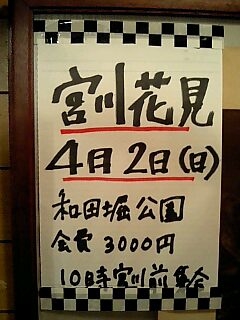 宮川花見
4月2日(日)
和田堀公園
会費3000円
10時宮川前集合